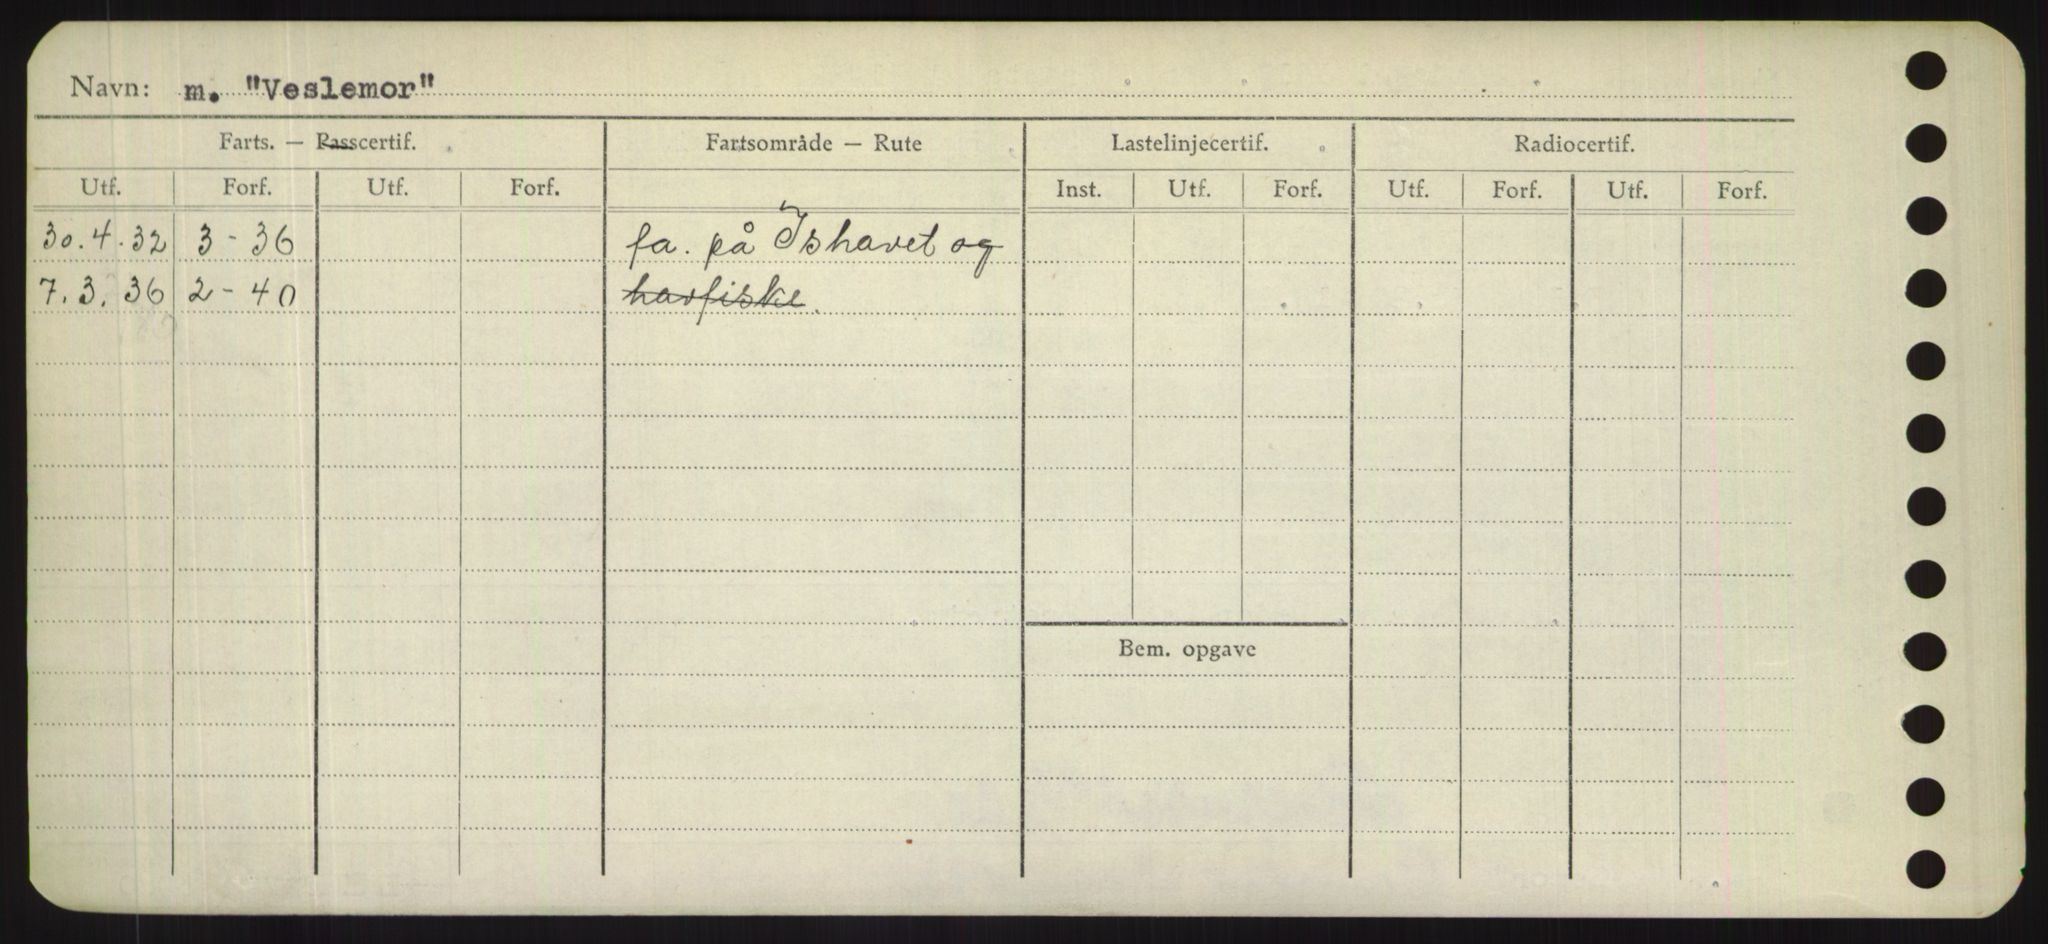 Navn: m. "Veslemor"
Farts. — Passcertif. Fartsområde — Rute Lastelinjecertif. Radiocertif.
Utf. Forf. Utf. Forf. Inst. Utf. Forf. Utf. Forf. Utf. Forf.
30.4.32 3-36 fa. på Ishavet og
7.3.36 2-40 havfiske.
Bem. opgave